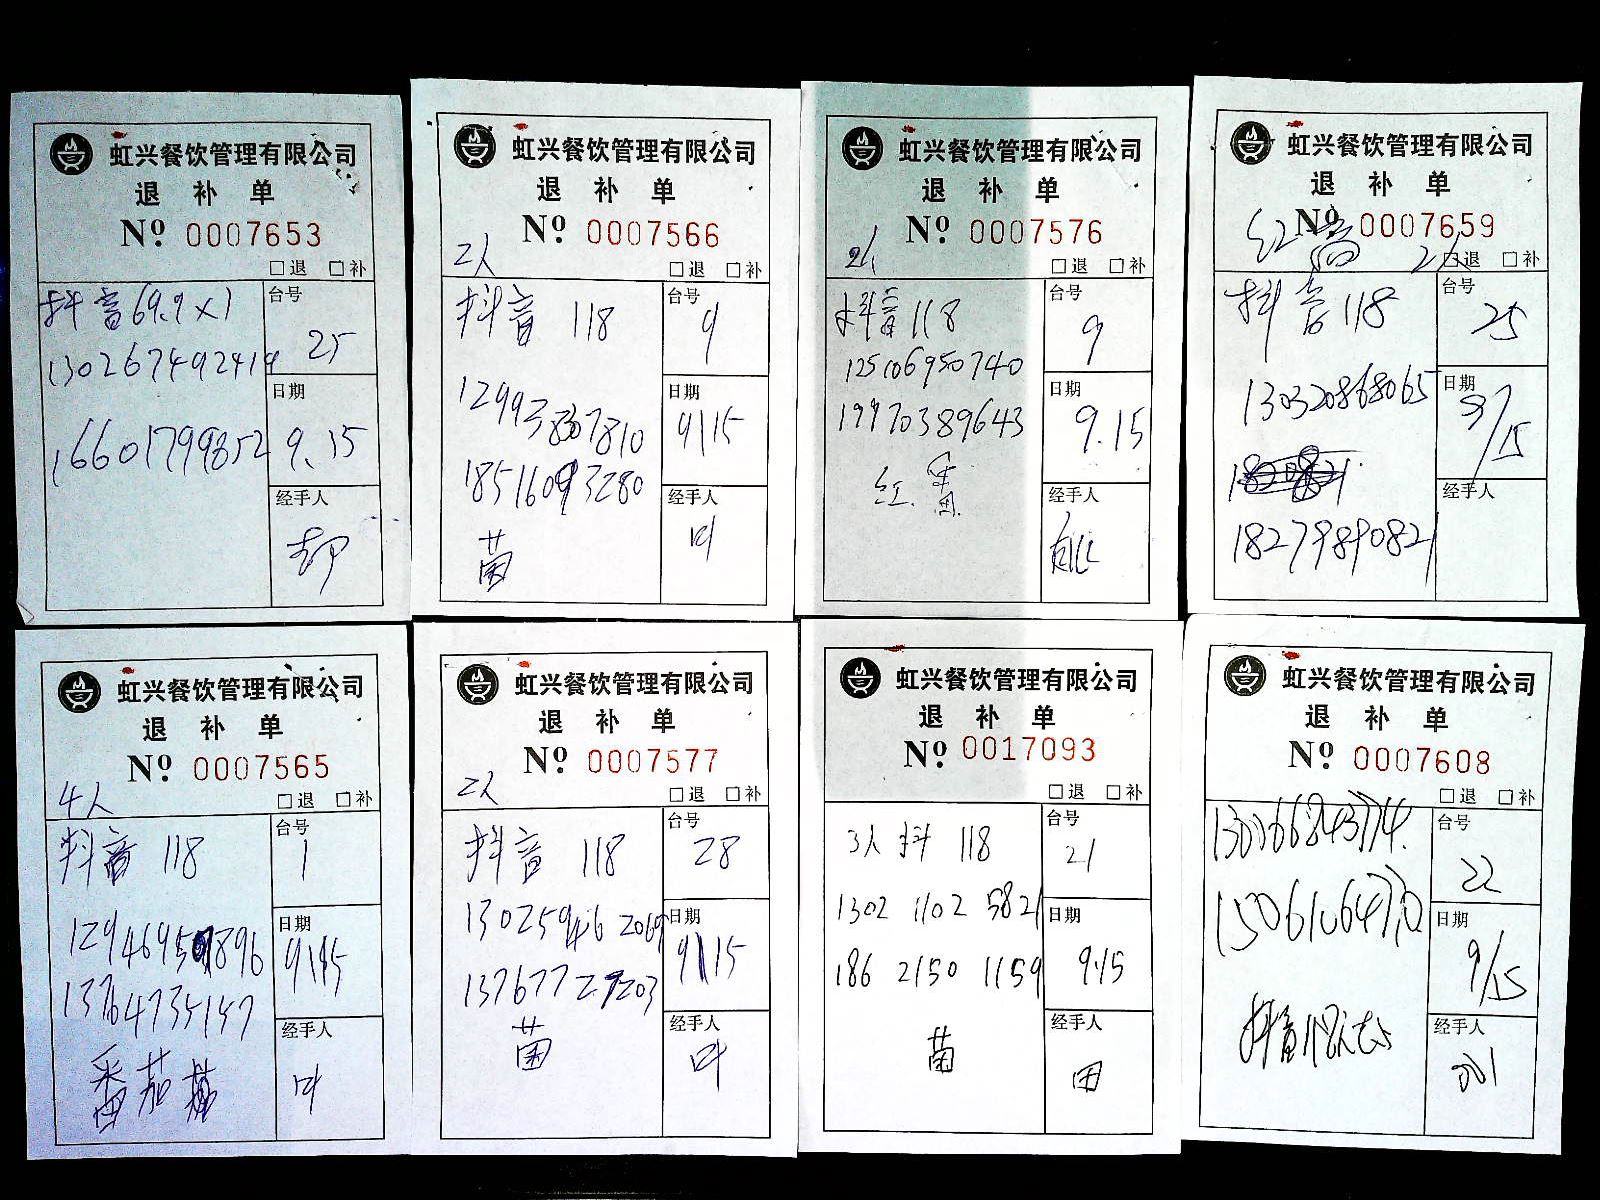 虹兴餐饮管理有限公司
退 补 单
№ 0007653
□退 □补
抖音69.9×1
130267492419
16601799852
台号
25
日期
9.15
经手人
虹兴餐饮管理有限公司
退 补 单
№ 0007566
2人
□退 □补
抖音 118
18516093280
菌
台号
9
日期
9/15
经手人
叶
虹兴餐饮管理有限公司
退 补 单
№ 0007576
2人
□退 □补
抖音118
125106950740
19970389643
红.番
台号
9
日期
9.15
经手人
虹兴餐饮管理有限公司
退 补 单
№ 0007659
红番 2人
□退 □补
抖音118
130320868065
18279890821
台号
25
日期
9/15
经手人
虹兴餐饮管理有限公司
退 补 单
№ 0007565
4人
□退 □补
抖音 118
13764735157
番茄菌
台号
1
日期
9/15
经手人
叶
虹兴餐饮管理有限公司
退 补 单
№ 0007577
2人
□退 □补
抖音 118
菌
台号
28
日期
9/15
经手人
叶
虹兴餐饮管理有限公司
退 补 单
№ 0017093
□退 □补
3人 抖 118
1302 1102 5821
186 2150 1159
菌
台号
21
日期
9.15
经手人
田
虹兴餐饮管理有限公司
退 补 单
№ 0007608
□退 □补
15061064770
抖音118
台号
22
日期
9/15
经手人